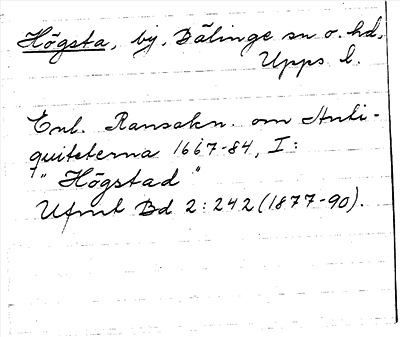 Högsta, by, Bälinge sn o. hd,
Upps l.
Enl. Ransakn. om Anti-
quiteterna 1667-84, I:
"Högstad"
Ufmt Bd 2:242 (1877-90).